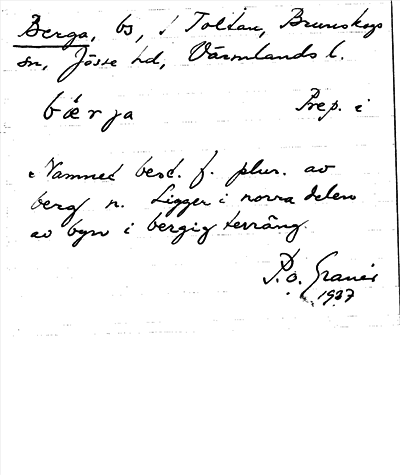 Berga, bs, i Toltan, Brunskogs
sn, Jösse hd, Värmlands l.
bærja Prep. i
Namnet best. f. plur. av
berg n. Ligger i norra delen
av byn i bergig terräng.
P.O. Graner
1937